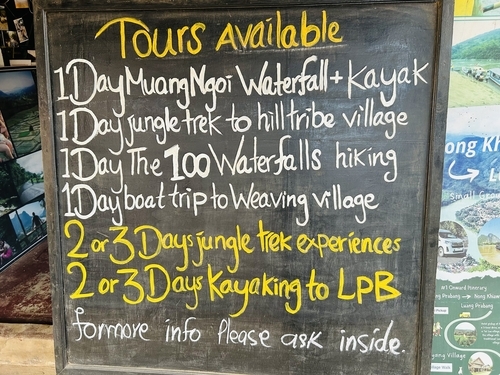 Tours Available
1Day Muang Ngoi Waterfall + Kayak
1Day jungle trek to hill tribe village
1Day The 100 Waterfalls hiking
1Day boat trip to Weaving village
2 or 3 Days jungle trek experiences
2 or 3 Days Kayaking to LPB
for more info Please ask inside.
ong Kh
L
Small Gro
Nong Khiaw
Luang Prabang